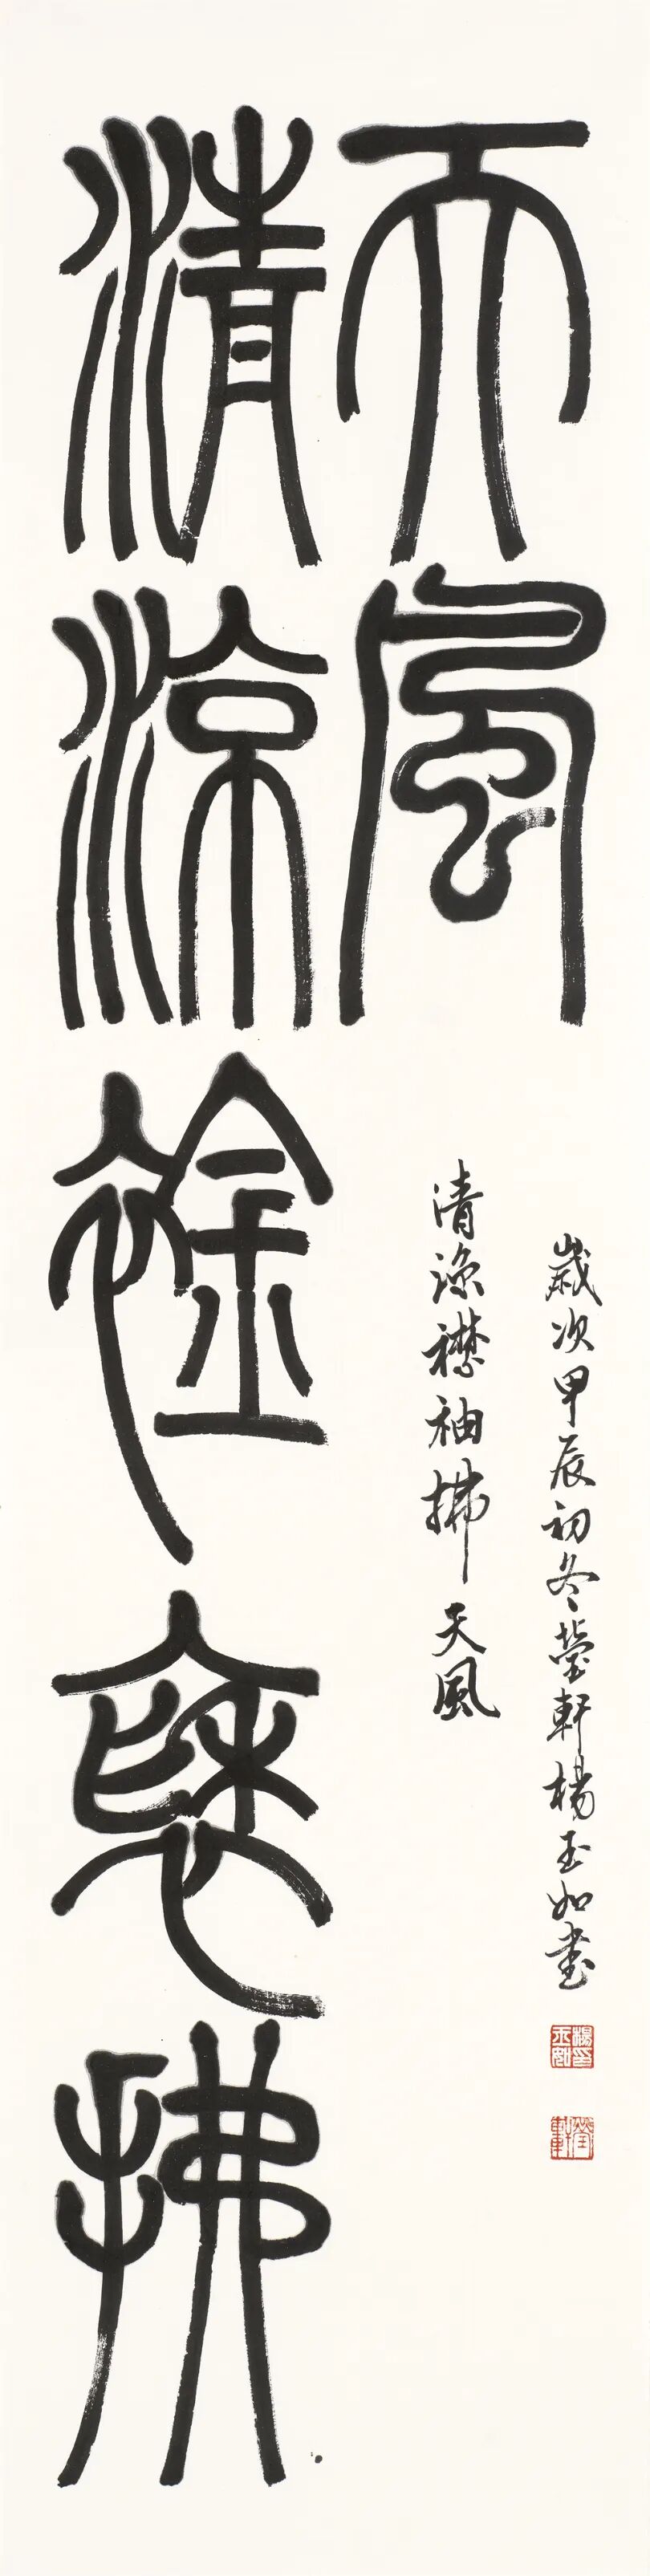 清涼襟袖拂
天風
清涼襟袖拂天風
歲次甲辰初冬瑩軒楊玉如書
楊印玉如
瑩軒